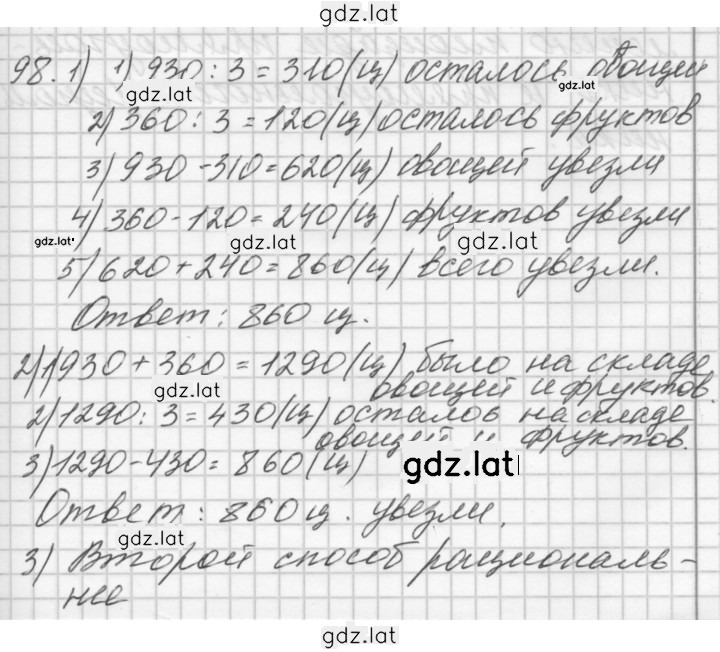 gdz.lat
98. 1) 1) 930 : 3 = 310 (ц) осталось овощей
gdz.lat
gdz.lat
2) 360 : 3 = 120 (ц) осталось фруктов
3) 930 - 310 = 620 (ц) овощей увезли
4) 360 - 120 = 240 (ц) фруктов увезли
gdz.lat
gdz.lat
gdz.lat
5) 620 + 240 = 860 (ц) всего увезли.
Ответ: 860 ц.
2) 1) 930 + 360 = 1290 (ц) было на складе
овощей и фруктов.
gdz.lat
2) 1290 : 3 = 430 (ц) осталось на складе
овощей и фруктов.
3) 1290 - 430 = 860 (ц)
gdz.lat
Ответ: 860 ц. увезли.
gdz.lat
3) Второй способ рациональ-
нее
gdz.lat